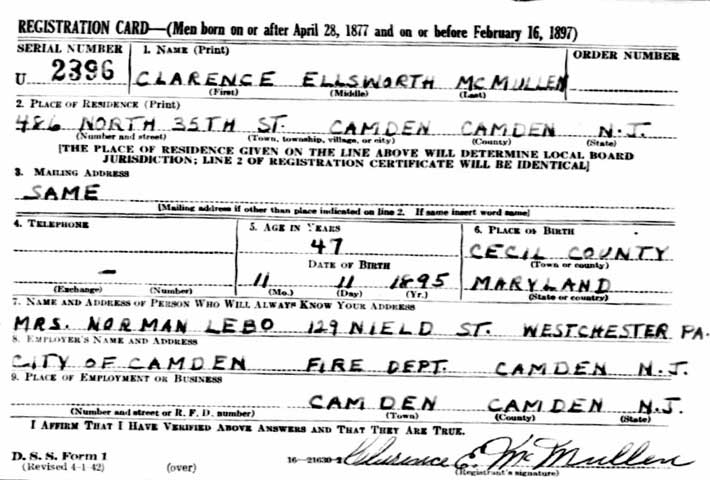 REGISTRATION CARD—(Men born on or after April 28, 1877 and on or before February 16, 1897)
SERIAL NUMBER 1. NAME (Print) ORDER NUMBER
U 2396 CLARENCE ELLSWORTH MCMULLEN
(First) (Middle) (Last)
2. PLACE OF RESIDENCE (Print)
486 NORTH 35TH ST. CAMDEN CAMDEN N.J.
(Number and street) (Town, township, village, or city) (County) (State)
[THE PLACE OF RESIDENCE GIVEN ON THE LINE ABOVE WILL DETERMINE LOCAL BOARD
JURISDICTION; LINE 2 OF REGISTRATION CERTIFICATE WILL BE IDENTICAL]
3. MAILING ADDRESS
SAME
[Mailing address if other than place indicated on line 2. If same insert word same]
4. TELEPHONE 5. AGE IN YEARS 6. PLACE OF BIRTH
47 CECIL COUNTY
DATE OF BIRTH (Town or county)
– 11 11 1895 MARYLAND
(Exchange) (Number) (Mo.) (Day) (Yr.) (State or country)
7. NAME AND ADDRESS OF PERSON WHO WILL ALWAYS KNOW YOUR ADDRESS
MRS. NORMAN LEBO 129 NIELD ST. WESTCHESTER PA.
8. EMPLOYER'S NAME AND ADDRESS
CITY OF CAMDEN FIRE DEPT. CAMDEN N.J.
9. PLACE OF EMPLOYMENT OR BUSINESS
CAMDEN CAMDEN N.J.
(Number and street or R. F. D. number) (Town) (County) (State)
I AFFIRM THAT I HAVE VERIFIED ABOVE ANSWERS AND THAT THEY ARE TRUE.
D. S. S. Form 1
(Revised 4-1-42) (over) 16—21630-2 Clarence E. McMullen
(Registrant's signature)